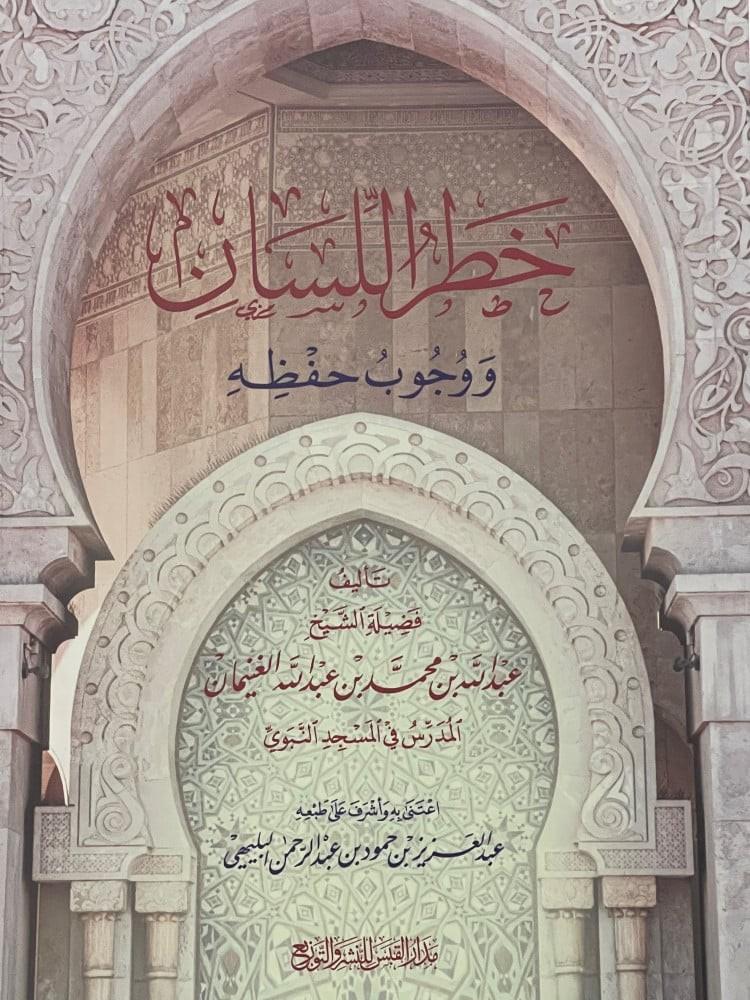 خَطَرُ اللِّسَانِ
وَوُجُوبُ حِفْظِهِ
تَأليفُ
فَضِيْلَةِ الشَّيْخِ
عَبْدِ اللهِ بْنِ مُحَمَّدِ بْنِ عَبْدِ اللهِ الغُنَيْمَان
المُدَرِّسُ فِي المَسْجِدِ النَّبَوِيِّ
اعْتَنَى بِهِ وَأَشْرَفَ عَلَى طَبْعِهِ
عبد العزيز بن حمود بن عبد الرحمن البليهي
مدار القبس للنشر والتوزيع